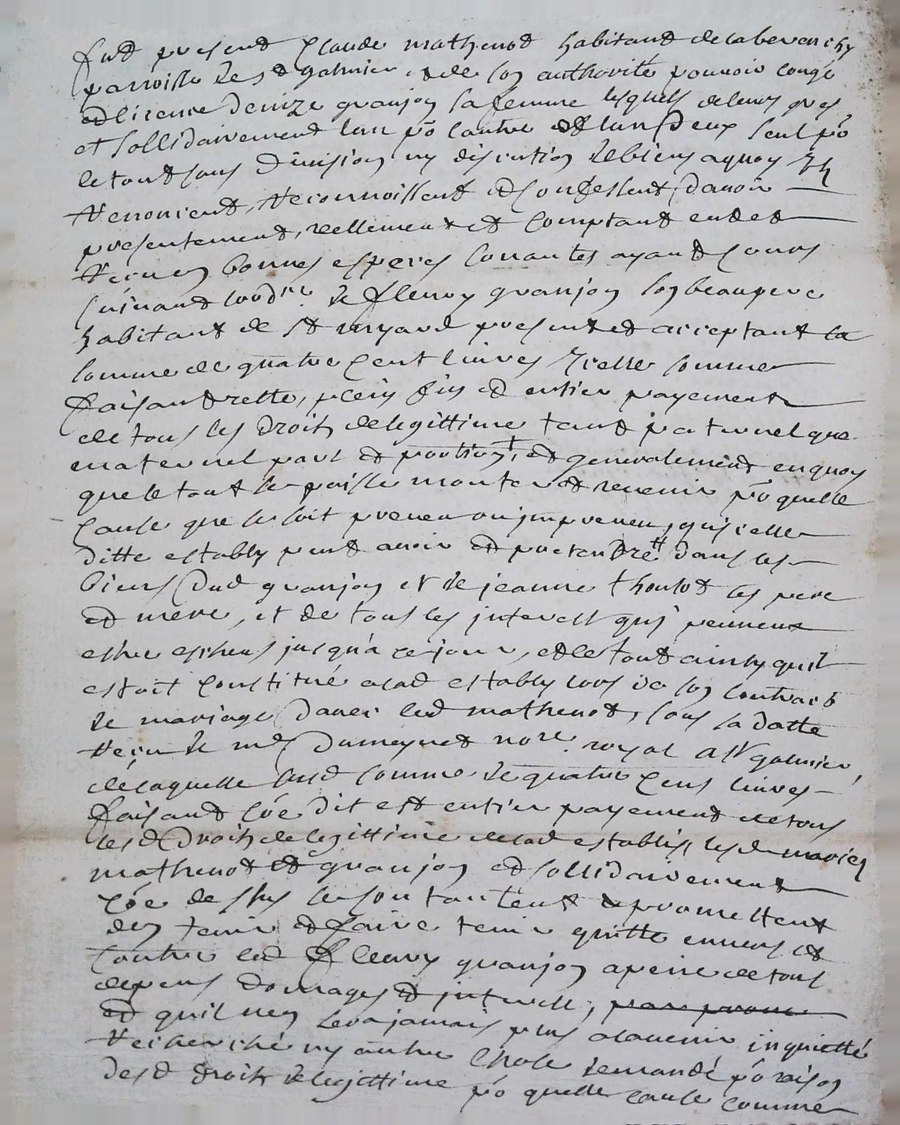 fut present Claude mathenod habitand de la bevranchy
parroisse de st galmier, & de son authorité pouvoir congé
et licence denize granjon sa femme lesquels de leurs grés
et sollidairement lun po lautre et lun deux seul po
le tout sans division ny discution de biens a quoy Ils
renoncent, reconnoissent et confessent davoir
presentement, reellement et comptant eu et
receu en bonnes especes sonantes ayant cours
suivant lordre de fleury granjon son beaupere
habitant de st present et acceptant la
somme de quatre cent livres Icelle somme
faisant reste, plein fin et entier payement
de tous les droits de legittime tant paternel que
maternel part et portion, et generalement en quoy
que le tout se puisse monter et revenir po quelle
cause que se soit preveu ou impreveu, qu'icelle
ditte establÿ peut avoir et pretendre dans les
biens dud granjon et de jeanne thoulod ses pere
et mere, et de tous les interest quj peuvent
estre escheus jusqu'à ce jour, et le tout ainsy quil
estoit constitué a lad establÿ lors de son contract
de mariage d'avec led mathenod, sous sa datte
receu de me Dumeynet nore royal a st galmier,
de laquelle susd somme de quatre cens livres
faisant coe dit est entier payement de tous
lesd droits de legittime de lad establis, lesd mariés
mathenod et granjon et sollidairement
coe dessus se contantent & promettent
den tenir et faire tenir quitte envers et
contre led fleury granjon a peine de tous
depens domages et interest,
et quil nen sera jamais plus a lavenir inquietté
recherché ny autre chose demandé po raison
desd droits de legittime po quelle cause comme